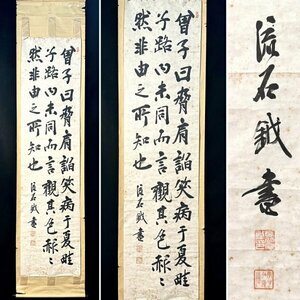 曾子曰脅肩諂笑病于夏畦
子路曰未同而言觀其色赧〻
然非由之所知也 石鉞書
曾子曰脅肩諂笑病于夏畦
子路曰未同而言觀其色赧〻
然非由之所知也 石鉞書
石鉞書